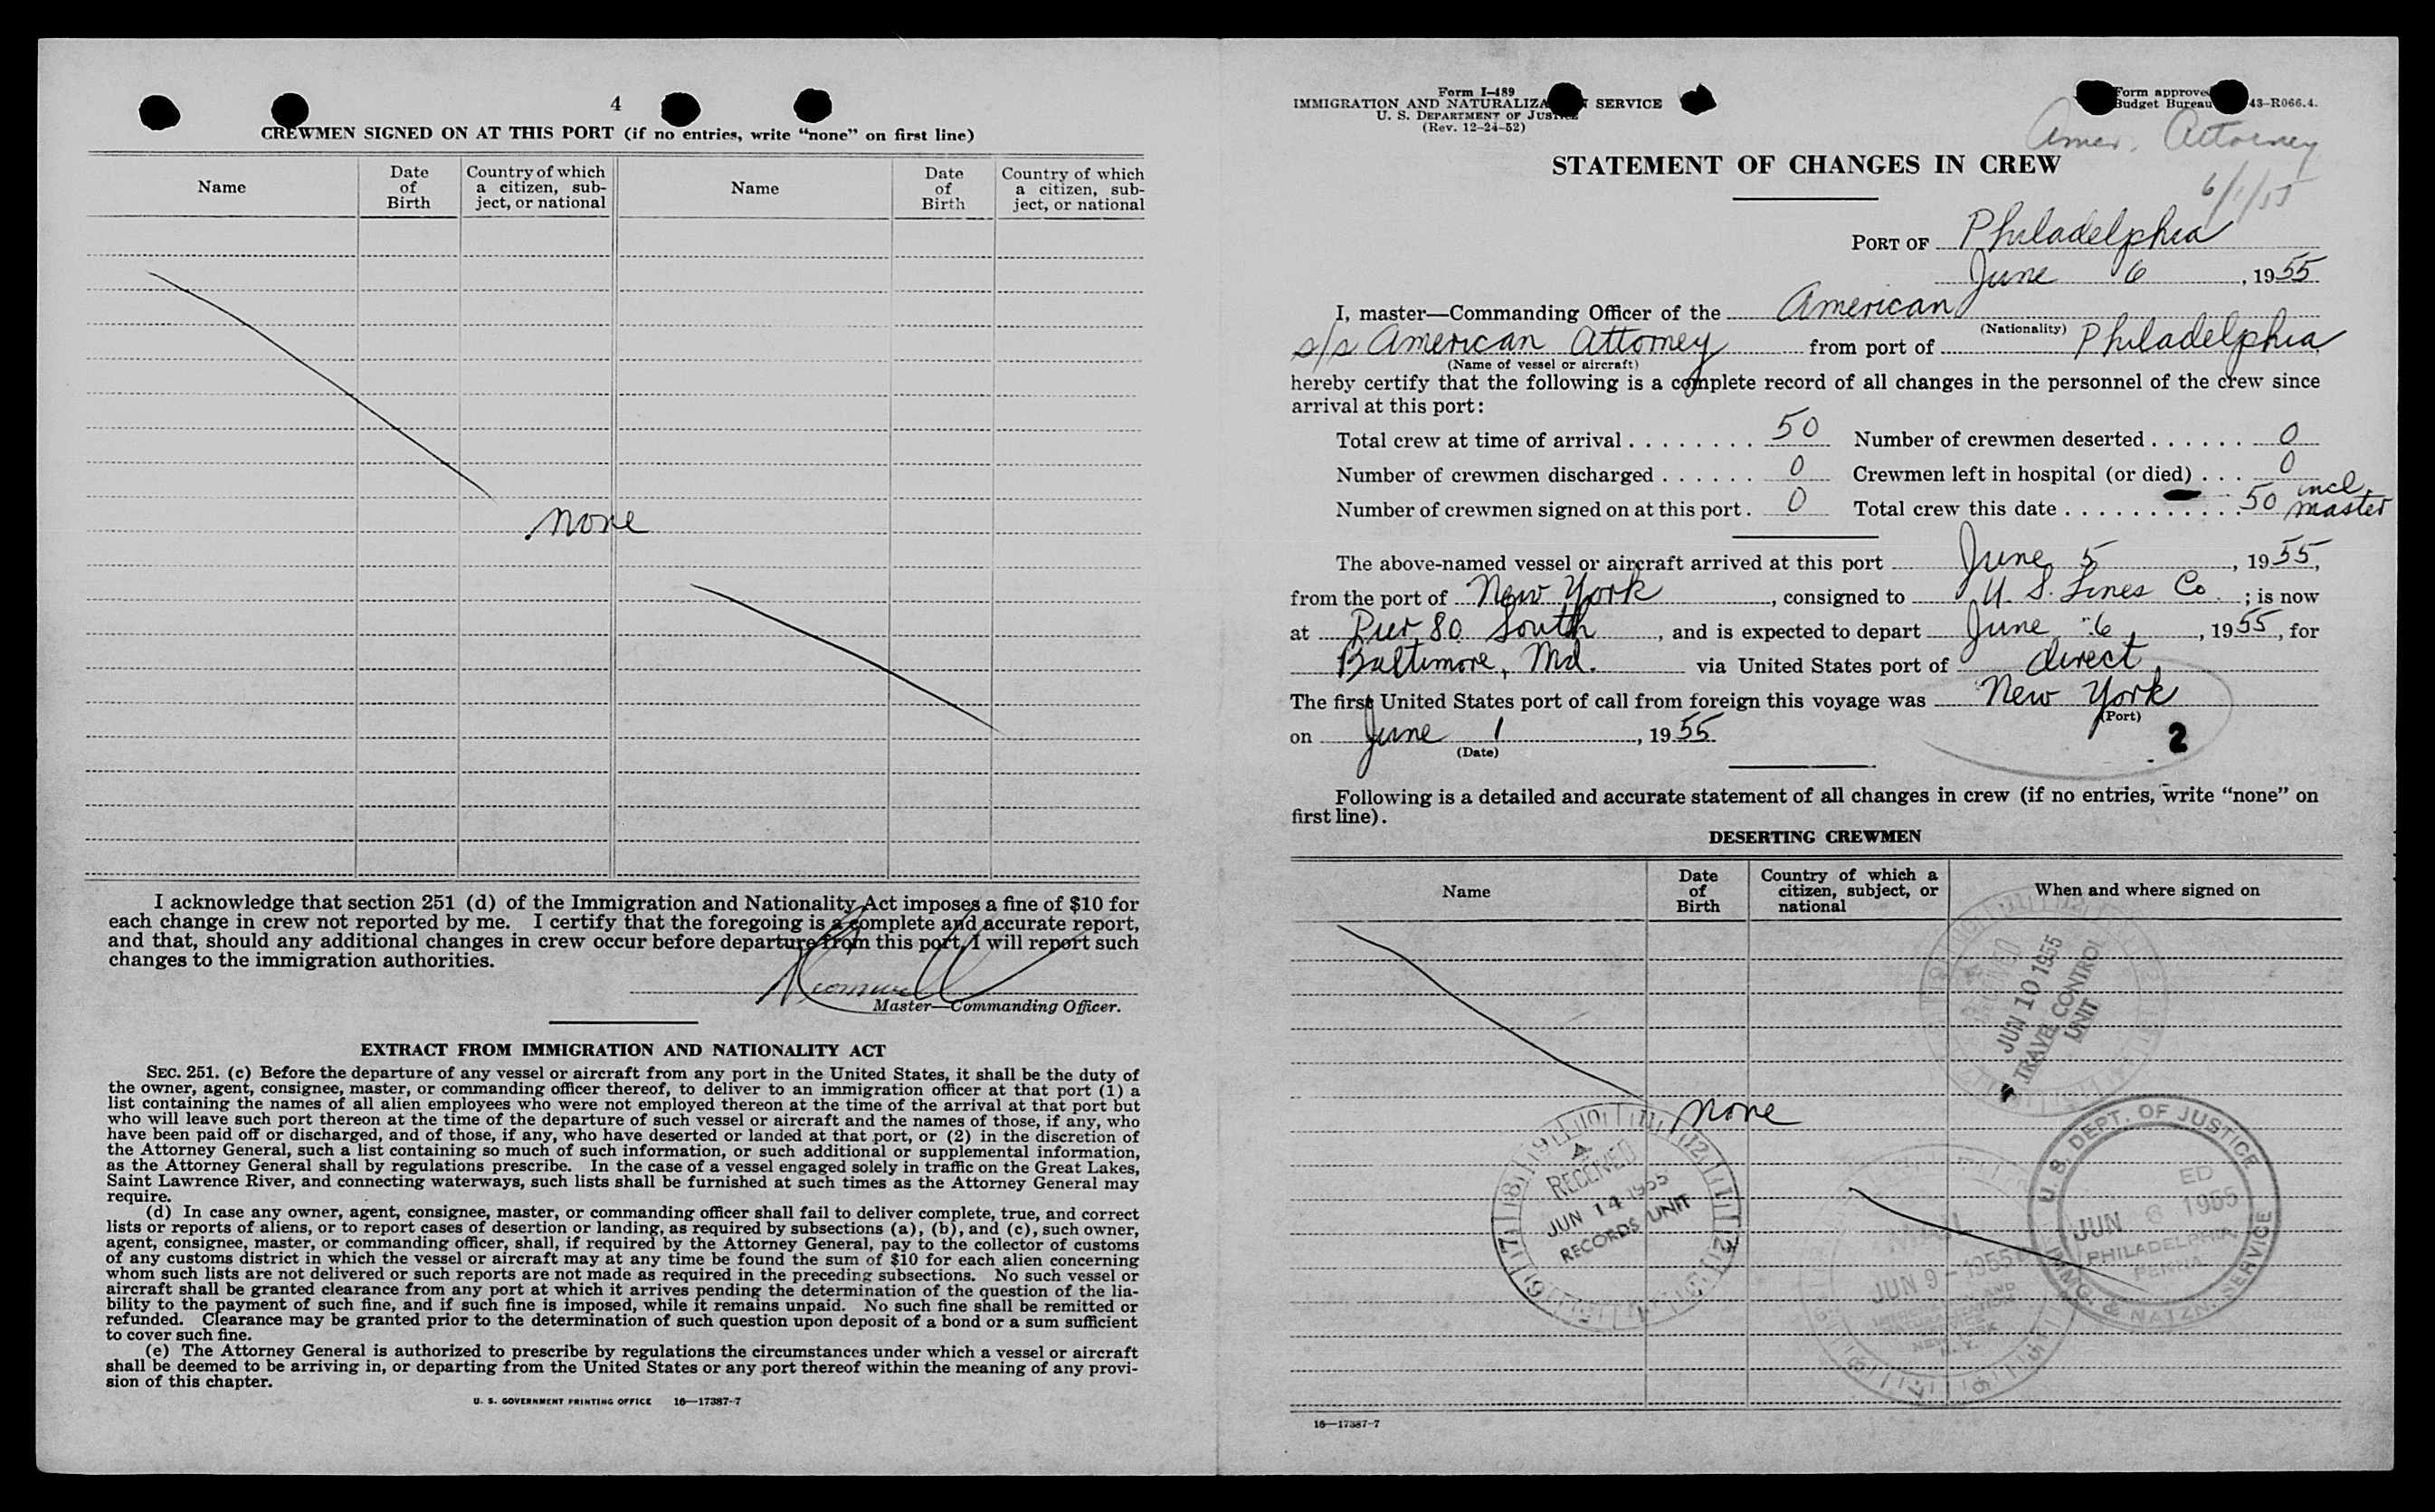 4
CREWMEN SIGNED ON AT THIS PORT (if no entries, write “none” on first line)
Name Date of Birth Country of which a citizen, subject, or national Name Date of Birth Country of which a citizen, subject, or national
none
I acknowledge that section 251 (d) of the Immigration and Nationality Act imposes a fine of $10 for
each change in crew not reported by me. I certify that the foregoing is a complete and accurate report,
and that, should any additional changes in crew occur before departure from this port, I will report such
changes to the immigration authorities.
Master—Commanding Officer.
EXTRACT FROM IMMIGRATION AND NATIONALITY ACT
SEC. 251. (c) Before the departure of any vessel or aircraft from any port in the United States, it shall be the duty of
the owner, agent, consignee, master, or commanding officer thereof, to deliver to an immigration officer at that port (1) a
list containing the names of all alien employees who were not employed thereon at the time of the arrival at that port but
who will leave such port thereon at the time of the departure of such vessel or aircraft and the names of those, if any, who
have been paid off or discharged, and of those, if any, who have deserted or landed at that port, or (2) in the discretion of
the Attorney General, such a list containing so much of such information, or such additional or supplemental information,
as the Attorney General shall by regulations prescribe. In the case of a vessel engaged solely in traffic on the Great Lakes,
Saint Lawrence River, and connecting waterways, such lists shall be furnished at such times as the Attorney General may
require.
(d) In case any owner, agent, consignee, master, or commanding officer shall fail to deliver complete, true, and correct
lists or reports of aliens, or to report cases of desertion or landing, as required by subsections (a), (b), and (c), such owner,
agent, consignee, master, or commanding officer, shall, if required by the Attorney General, pay to the collector of customs
of any customs district in which the vessel or aircraft may at any time be found the sum of $10 for each alien concerning
whom such lists are not delivered or such reports are not made as required in the preceding subsections. No such vessel or
aircraft shall be granted clearance from any port at which it arrives pending the determination of the question of the lia-
bility to the payment of such fine, and if such fine is imposed, while it remains unpaid. No such fine shall be remitted or
refunded. Clearance may be granted prior to the determination of such question upon deposit of a bond or a sum sufficient
to cover such fine.
(e) The Attorney General is authorized to prescribe by regulations the circumstances under which a vessel or aircraft
shall be deemed to be arriving in, or departing from the United States or any port thereof within the meaning of any provi-
sion of this chapter.
U. S. GOVERNMENT PRINTING OFFICE 16—17387-7
Form I-489
IMMIGRATION AND NATURALIZATION SERVICE
U. S. DEPARTMENT OF JUSTICE
(Rev. 12-24-52)
Form approved
Budget Bureau 43-R066.4.
Amer. Attorney
6/1/55
STATEMENT OF CHANGES IN CREW
PORT OF Philadelphia
June 6, 1955
I, master—Commanding Officer of the American
(Nationality)
s/s American Attorney from port of Philadelphia
(Name of vessel or aircraft)
hereby certify that the following is a complete record of all changes in the personnel of the crew since
arrival at this port:
Total crew at time of arrival . . . . . . . . 50 Number of crewmen deserted . . . . . . 0
Number of crewmen discharged . . . . . . 0 Crewmen left in hospital (or died) . . . 0
Number of crewmen signed on at this port . 0 Total crew this date . . . . . . . . . . . 50 incl. master
The above-named vessel or aircraft arrived at this port June 5, 1955,
from the port of New York, consigned to U. S. Lines Co.; is now
at Pier 80 South, and is expected to depart June 6, 1955, for
Baltimore, Md. via United States port of direct
The first United States port of call from foreign this voyage was New York
(Port)
on June 1, 1955
(Date)
2
Following is a detailed and accurate statement of all changes in crew (if no entries, write “none” on
first line).
DESERTING CREWMEN
Name Date of Birth Country of which a citizen, subject, or national When and where signed on
RECEIVED
JUN 10 1955
TRAVEL CONTROL
UNIT
none
A
RECEIVED
JUN 14 1955
RECORDS UNIT
JUN 9 - 1955
IMMIGRATION AND
NATURALIZATION
SERVICE
NEW YORK
N. Y.
U. S. DEPT. OF JUSTICE
JUN 6 1955
PHILADELPHIA
PENNA
IMMG. & NATZN. SERVICE
16—17387-7